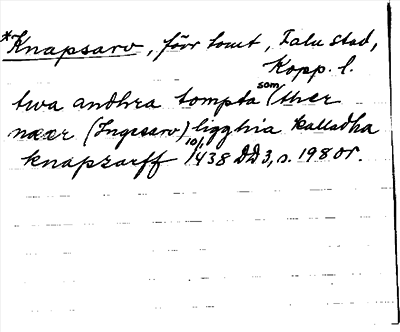 *Knapsarv, förr tomt, Falu stad,
Kopp. l.
twa andhra tompta som (ther
nær (Ingesarv) ligghia kalladha
knapsarff 10/1 1438 DD3, s. 198 or.